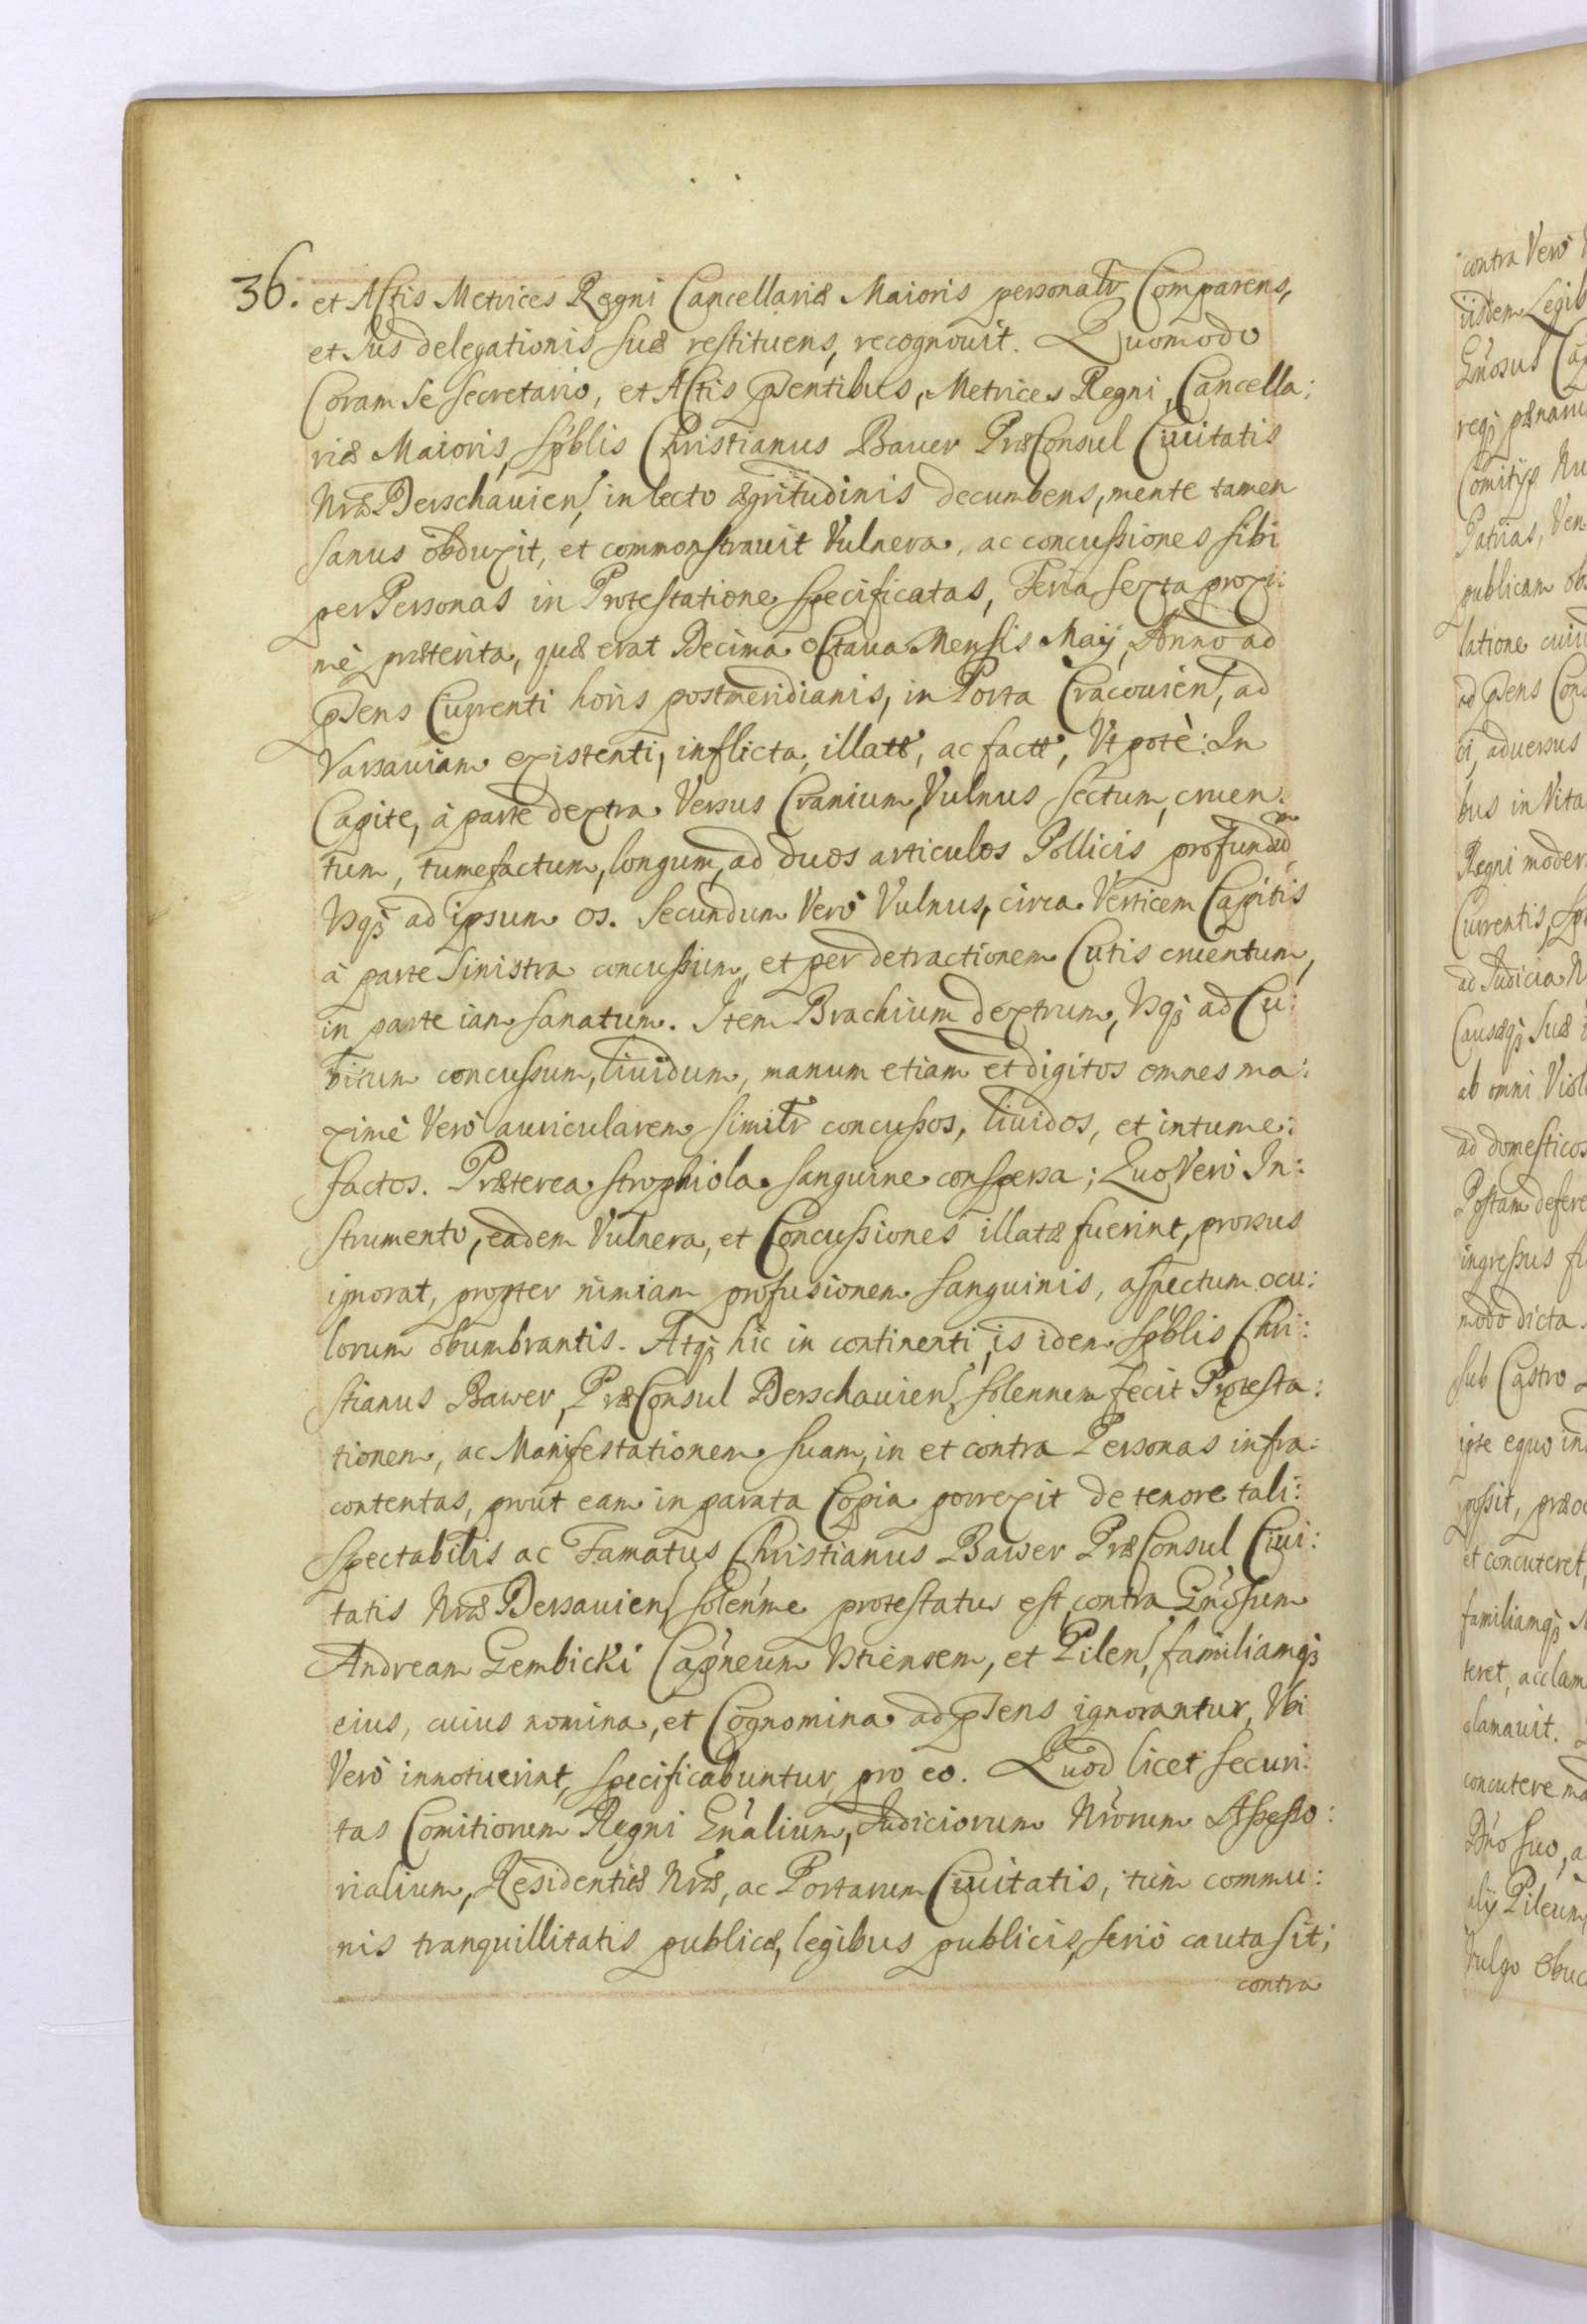 36. et Actis Metrices Regni Cancellariæ Maioris personalr Comparens,
et Jus delegationis suæ restituens, recognouit. Quomodo
Coram Se Secretario, et Actis pñtibus, Metrices Regni, Cancella:
riæ Maioris, Spblis Christianus Bauer PræConsul Ciuitatis
Nræ Derschauien, in lecto ægritudinis decumbens, mente tamen
sanus obduxit, et commonstrauit Vulnera, ac concussiones sibi
per Personas in Protestatione specificatas, Feria sexta proxi:
mè præterita, quæ erat Decima octaua Mensis Maij, Anno ad
pñs Currenti horis postmeridianis, in Porta Cracouien, ad
Varsauiam existenti, inflicta, illatæ, ac factæ, Vtpotè: In
Capite, à parte dextra Versus Cranium, Vulnus sectum, cruen:
tum, tumefactum, longum, ad duos articulos Pollicis profundum
Vsq; ad ipsum os. Secundum Verò Vulnus, circa Verticem Capitis
à parte Sinistra concussum, et per detractionem Cutis cruentum,
in parte iam sanatum. Item Brachium dextrum, Vsq; ad Cu:
bitum concussum, liuidum, manum etiam et digitos omnes ma:
ximè Verò auricularem similr concussos, liuidos, et intume:
factos. Præterea strophiola sanguine conspersa; Quo Verò In:
strumento, eadem Vulnera, et Concussiones illatæ fuerint, prorsus
ignorat, propter nimiam profusionem sanguinis, aspectum ocu:
lorum obumbrantis. Atq; hic in continenti, is idem Spblis Chri:
stianus Bawer, PræConsul Derschauien, solennem fecit Protesta:
tionem, ac Manifestationem suam, in et contra Personas infra:
contentas, prout eam in parata Copia porrexit de tenore tali:
Spectabilis ac Famatus Christianus Bawer PræConsul Ciui:
tatis Nræ Dersauien solenñme protestatus est contra Gñosum
Andream Gembicki Capñeum Vstiensem, et Pilen, familiamq;
eius, cuius nomina, et Cognomina ad pñs ignorantur, Vbi
Verò innotuerint, specificabuntur, pro eo. Quod licet securi:
tas Comitiorum Regni Gñalium, Judiciorum Nrorum Assesso:
rialium, Residentiæ Nræ, ac Portarum Ciuitatis, tùm commu:
nis tranquillitatis publicæ, legibus publicis, seriò cauta sit;
contra